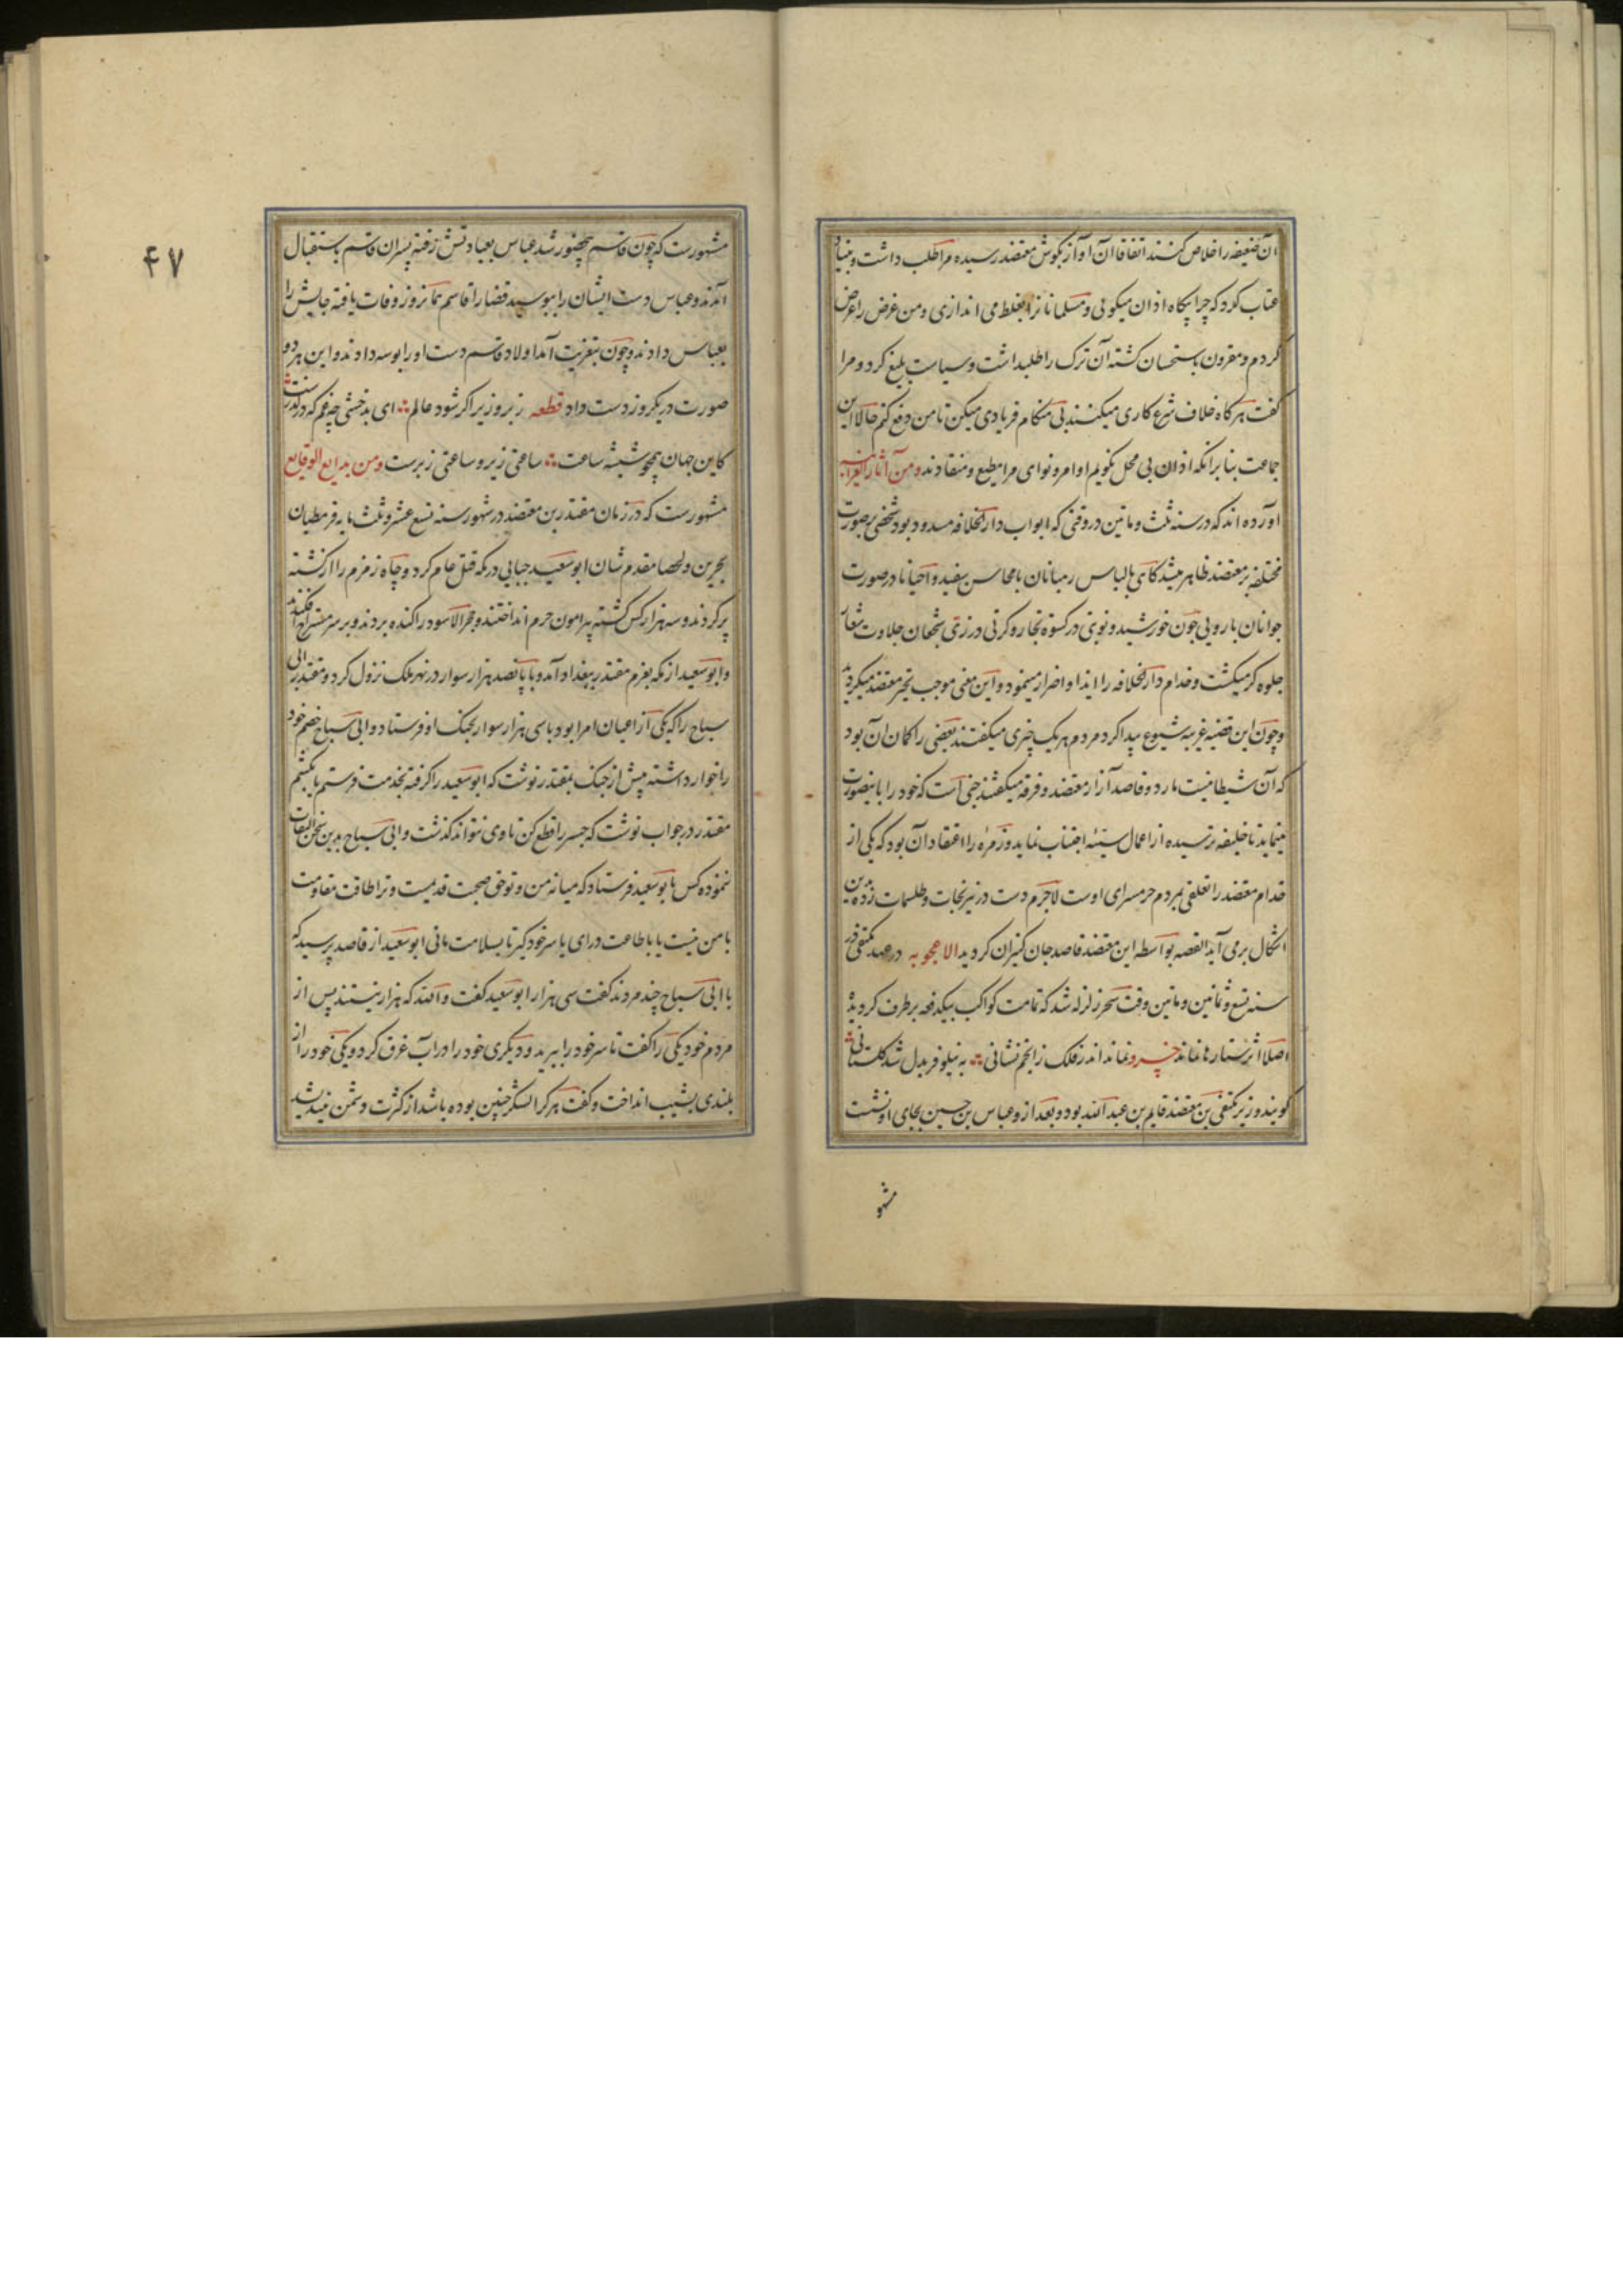 آن ضعیفه را خلاص کنند اتفاقا آن آواز بگوش معتضد رسیده مرا طلب داشت و بنیاد
عتاب کرد که چرا بیکاه اذان میکویی و مسلمانانرا بغلط می اندازی و من غرض را عرض
کردم و مقرون باستحسان کشته آن ترک را طلبداشت و سیاست بلیغ کرد و مرا
کفت هر کاه خلاف شرع کاری میکنند بی هنکام فریادی میکن تا من دفع کنم حالا این
جماعت بنا برانکه اذان بی محل نکویم اوامر و نواهی مرا مطیع و منقادند ومن آثار الغرایب
آورده اند که در سنه ثلث و ماتین در وقتی که ابواب دار الخلافه مسدود بود شخصی بصورت
مختلفه بر معتضد ظاهر میشد کاهی بالباس رهبانان با محاسن سفید و احیانا در صورت
جوانان با رویی چون خورشید و نوبتی در کسوه تجار و کرتی در زی شجعان جلادت شعار
جلوه کر میکشت و خدام دار الخلافه را ایذا و اضرار مینمود و این معنی موجب تحیر معتضد میکردید
و چون این قضیه غریبه شیوع پیدا کرد مردم هر یک چیزی میکفتند بعضی را کمان آن بود
که آن شیطانیست مارد و قاصد آزار معتضد و فرقه میکفتند جنی است که خود را باینصورت
مینماید تا خلیفه ترسیده از اعمال سیئه اجتناب نماید و زمره را اعتقاد آن بود که یکی از
خدام معتضد را تعلقی بمردم حرمسرای اوست لاجرم دست در نیرنجات و طلسمات زده بدین
اشکال برمی آید القصه بواسطه این معتضد قاصد جان کنیزان کردید الاعجوبه در عهد مکتفی در
سنه تسع و ثمانین و ماتین وقت سحر زلزله شد که تمامت کواکب بیکدفعه برطرف کردید
اصلا اثر ستارها نماند خسرو نماند اندر فلک ز انجم نشانی ∴ به نیلوفر بدل شد کلستانی
کویند وزیر مکتفی بن معتضد قاسم بن عبدالله بود و بعد از و عباس بن حسین بجای او نشست
مشهو
۴۷
مشهورست که چون قاسم محتضر شد عباس بعیادتش رفته پسران قاسم باستقبال
آمدند و عباس دست ایشان را ببوسید قضا را قاسم همانروز وفات یافته جایش را
بعباس دادند و چون بتعزیت آمد اولاد قاسم دست او را بوسه دادند و این هر دو
صورت در یکروز دست داد قطعه زبر و زیر اکر شود عالم ∴ ای بدخشی چه غم که در کذرست
کاین جهان همچو شیشه ساعت ∴ ساعتی زیر و ساعتی زبرست ومن بدایع الوقایع
مشهورست که در زمان مقتدر بن معتضد در شهور سنه تسع عشر و ثلث مایه قرمطیان
بحرین ولحصا مقدم شان ابو سعید جبایی در مکه قتل عام کرد و چاه زمزم را از کشته
پر کردند و سه هزار کس کشته پیرامون حرم انداختند و حجر الاسود را کنده بردند و بر سر مستراحها افکندند
و ابو سعید از مکه بعزم مقتدر ببغداد آمد و با پانصد هزار سوار در نهر ملک نزول کرد و مقتدر ابی
سیاح را که یکی از اعیان امرا بود با سی هزار سوار بجنک او فرستاد و ابی سیاح خصم خود
را خوار داشته پیش از جنک بمقتدر نوشت که ابو سعید را کرفته بخدمت فرستم یا بکشم
مقتدر در جواب نوشت که جسر را قطع کن تا وی نتواند کذشت و ابی سیاح بدین سخن التفات
ننموده کس بابو سعید فرستاد که میانه من و تو حق صحبت قدیمست و ترا طاقت مقاومت
با من نیست یا باطاعت درای یا سر خود کیر تا بسلامت مانی ابو سعید از قاصد پرسید که
با ابی سیاح چند مردند کفت سی هزار ابو سعید کفت والله که هزار نیستند پس از
مردم خود یکی را کفت تا سر خود را ببرید و دیکری خود را در آب غرق کرد و یکی خود را از
بلندی بشیب انداخت و کفت هر کرا لشکر چنین بوده باشد از کثرت دشمن نیندیشد